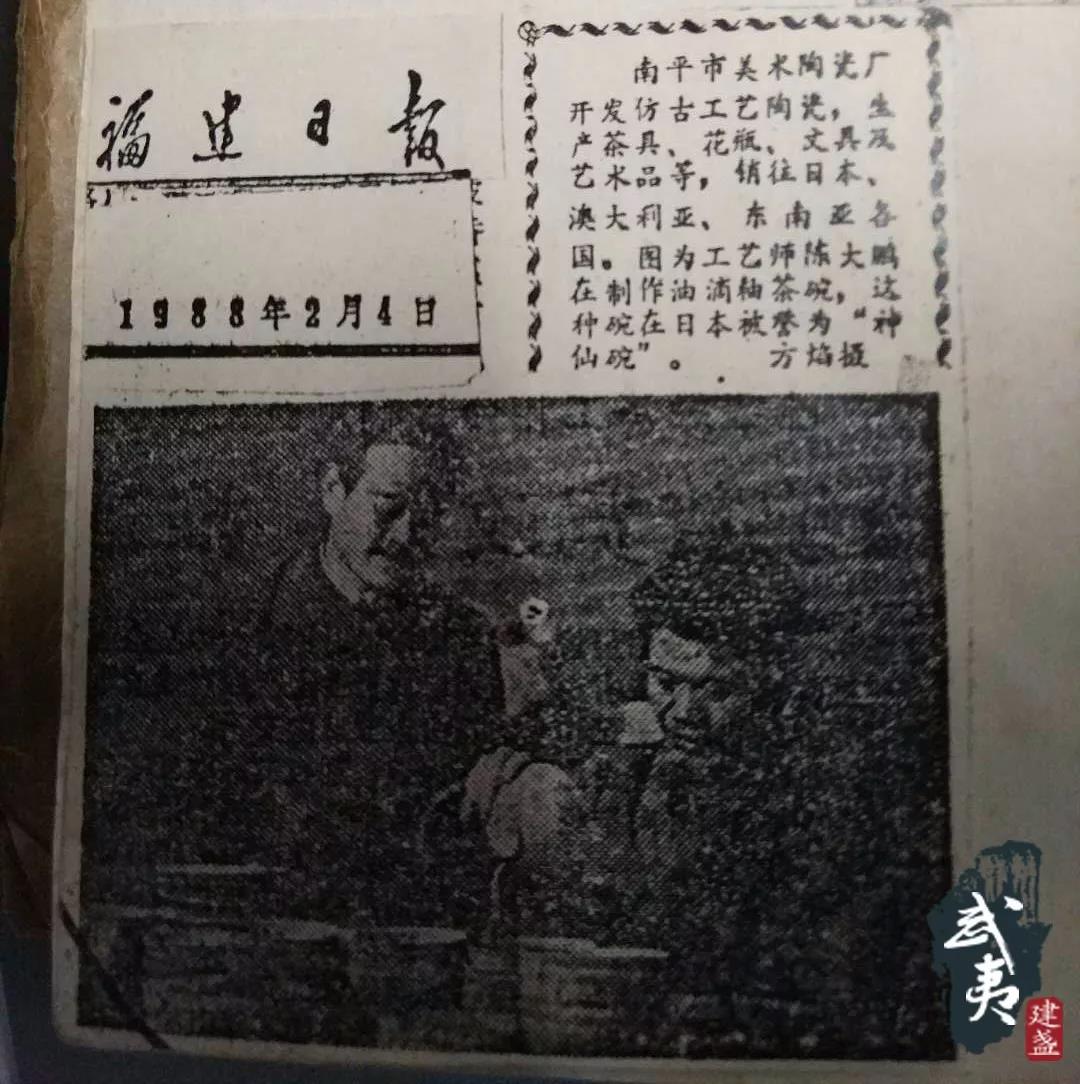 福建日报
1988年2月4日
南平市美术陶瓷厂
开发仿古工艺陶瓷，生
产茶具、花瓶、文具及
艺术品等，销往日本、
澳大利亚、东南亚各
国。图为工艺师陈大鹏
在制作油滴釉茶碗，这
种碗在日本被誉为“神
仙碗”。 方焰摄
武夷
建盏